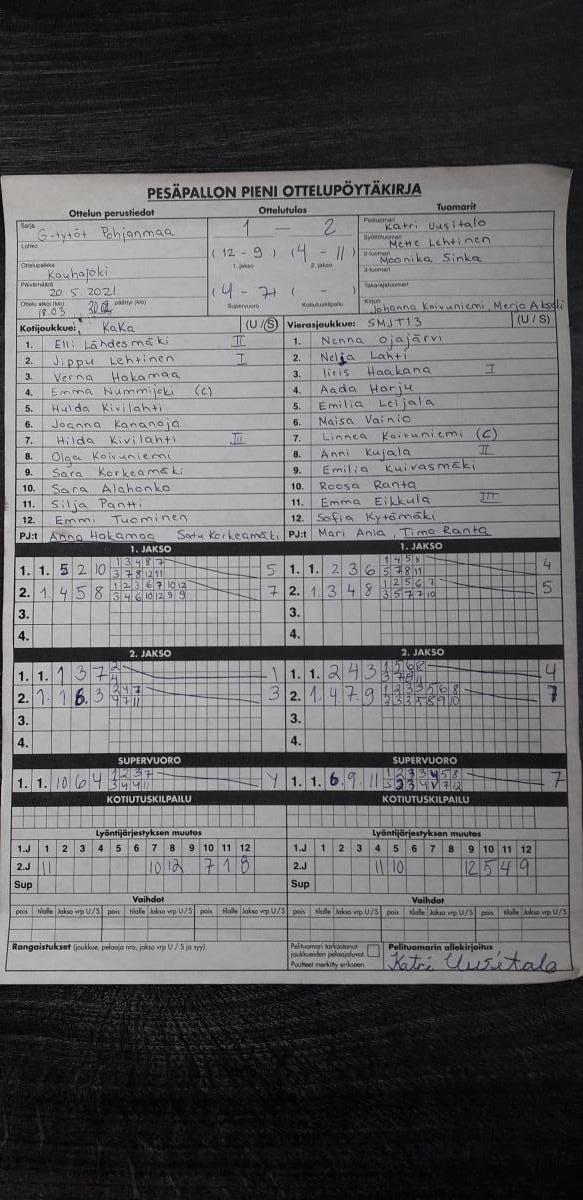 PESÄPALLON PIENI OTTELUPÖYTÄKIRJA
Ottelun perustiedot Ottelutulos Tuomarit
Sarja G-tytöt Pohjanmaa 1 - 2 Pelituomari Katri Uusitalo
Lohko Syöttötuomari Mette Lehtinen
(12 - 9) (4 - 11) 2-tuomari Moonika Sinka
Ottelupaikka Kauhajoki 1. jakso 2. jakso 3-tuomari
Päivämäärä 20.5.2021 (4 - 7) ( - ) Takarajatuomari
Ottelu alkoi (klo) 18.03 päättyi (klo) Supervuoro Kotiutuskilpailu Kirjuri Johanna Koivuniemi, Merja
Kotijoukkue: KaKa (U/S) Vierasjoukkue: SMJT13 (U/S)
1. Elli Lähdesmäki II 1. Nenna Ojajärvi
2. Jippu Lehtinen I 2. Nelja Lahti
3. Verna Hakamaa 3. Iiris Haakana I
4. Emma Nummijoki (C) 4. Aada Harju
5. Hulda Kivilahti 5. Emilia Leijala
6. Joanna Kananoja 6. Maisa Vainio
7. Hilda Kivilahti III 7. Linnea Koivuniemi (C)
8. Olga Koivuniemi 8. Anni Kujala II
9. Sara Korkeamäki 9. Emilia Kuivasmäki
10. Sara Alahonko 10. Roosa Ranta
11. Silja Pantti 11. Emma Eikkula III
12. Emmi Tuominen 12. Sofia Kytömäki
PJ:t Anna Hakamaa Satu Korkeamäki PJ:t Mari Ania, Timo Ranta
1. JAKSO 1. JAKSO
1. 1. 5 2 10 1 3 4 8 7 5 1. 1. 2 3 6 1 4 5 8 4
3 7 8 12 11 5 7 8 11
2. 1. 4 5 8 1 2 3 6 7 10 12 7 2. 1. 3 4 8 1 2 5 6 7 5
3 4 6 10 12 9 9 3 5 7 7 10
3. 3.
4. 4.
2. JAKSO 2. JAKSO
1. 1. 1 3 7 2 1 1. 1. 2 4 3 1 5 6 8 4
4 3 7 8 11
2. 1. 1 6. 3 2 4 7 3 2. 1. 4 7 9 1 2 3 3 5 6 8 7
4 7 11 3 3 3 5 8 9 10
3. 3.
4. 4.
SUPERVUORO SUPERVUORO
1. 1. 10 6 4 1 2 3 7 4 1. 1. 6. 9. 11 7
3 4 4 11
KOTIUTUSKILPAILU KOTIUTUSKILPAILU
Lyöntijärjestyksen muutos Lyöntijärjestyksen muutos
1.J 1 2 3 4 5 6 7 8 9 10 11 12 1.J 1 2 3 4 5 6 7 8 9 10 11 12
2.J 11 10 12 7 1 8 2.J 11 10 12 5 4 9
Sup Sup
Vaihdot Vaihdot
pois tilalle Jakso vrp U/S pois tilalle Jakso vrp U/S pois tilalle Jakso vrp U/S pois tilalle Jakso vrp U/S pois tilalle Jakso vrp U/S pois tilalle Jakso vrp U/S
Rangaistukset (joukkue, pelaaja nro, jakso vrp U / S ja syy) Pelituomari tarkastanut Pelituomarin allekirjoitus
joukkueiden pelaajaluvat Katri Uusitalo
Puutteet merkitty erikseen